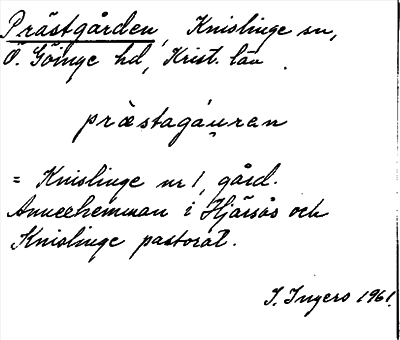 Prästgården, Knislinge sn,
Ö. Göinge hd, Krist. län.
præstagáu̯ran
= Knislinge nr 1, gård.
Annexhemman i Hjärsås och
Knislinge pastorat.
I. Ingers 1961.